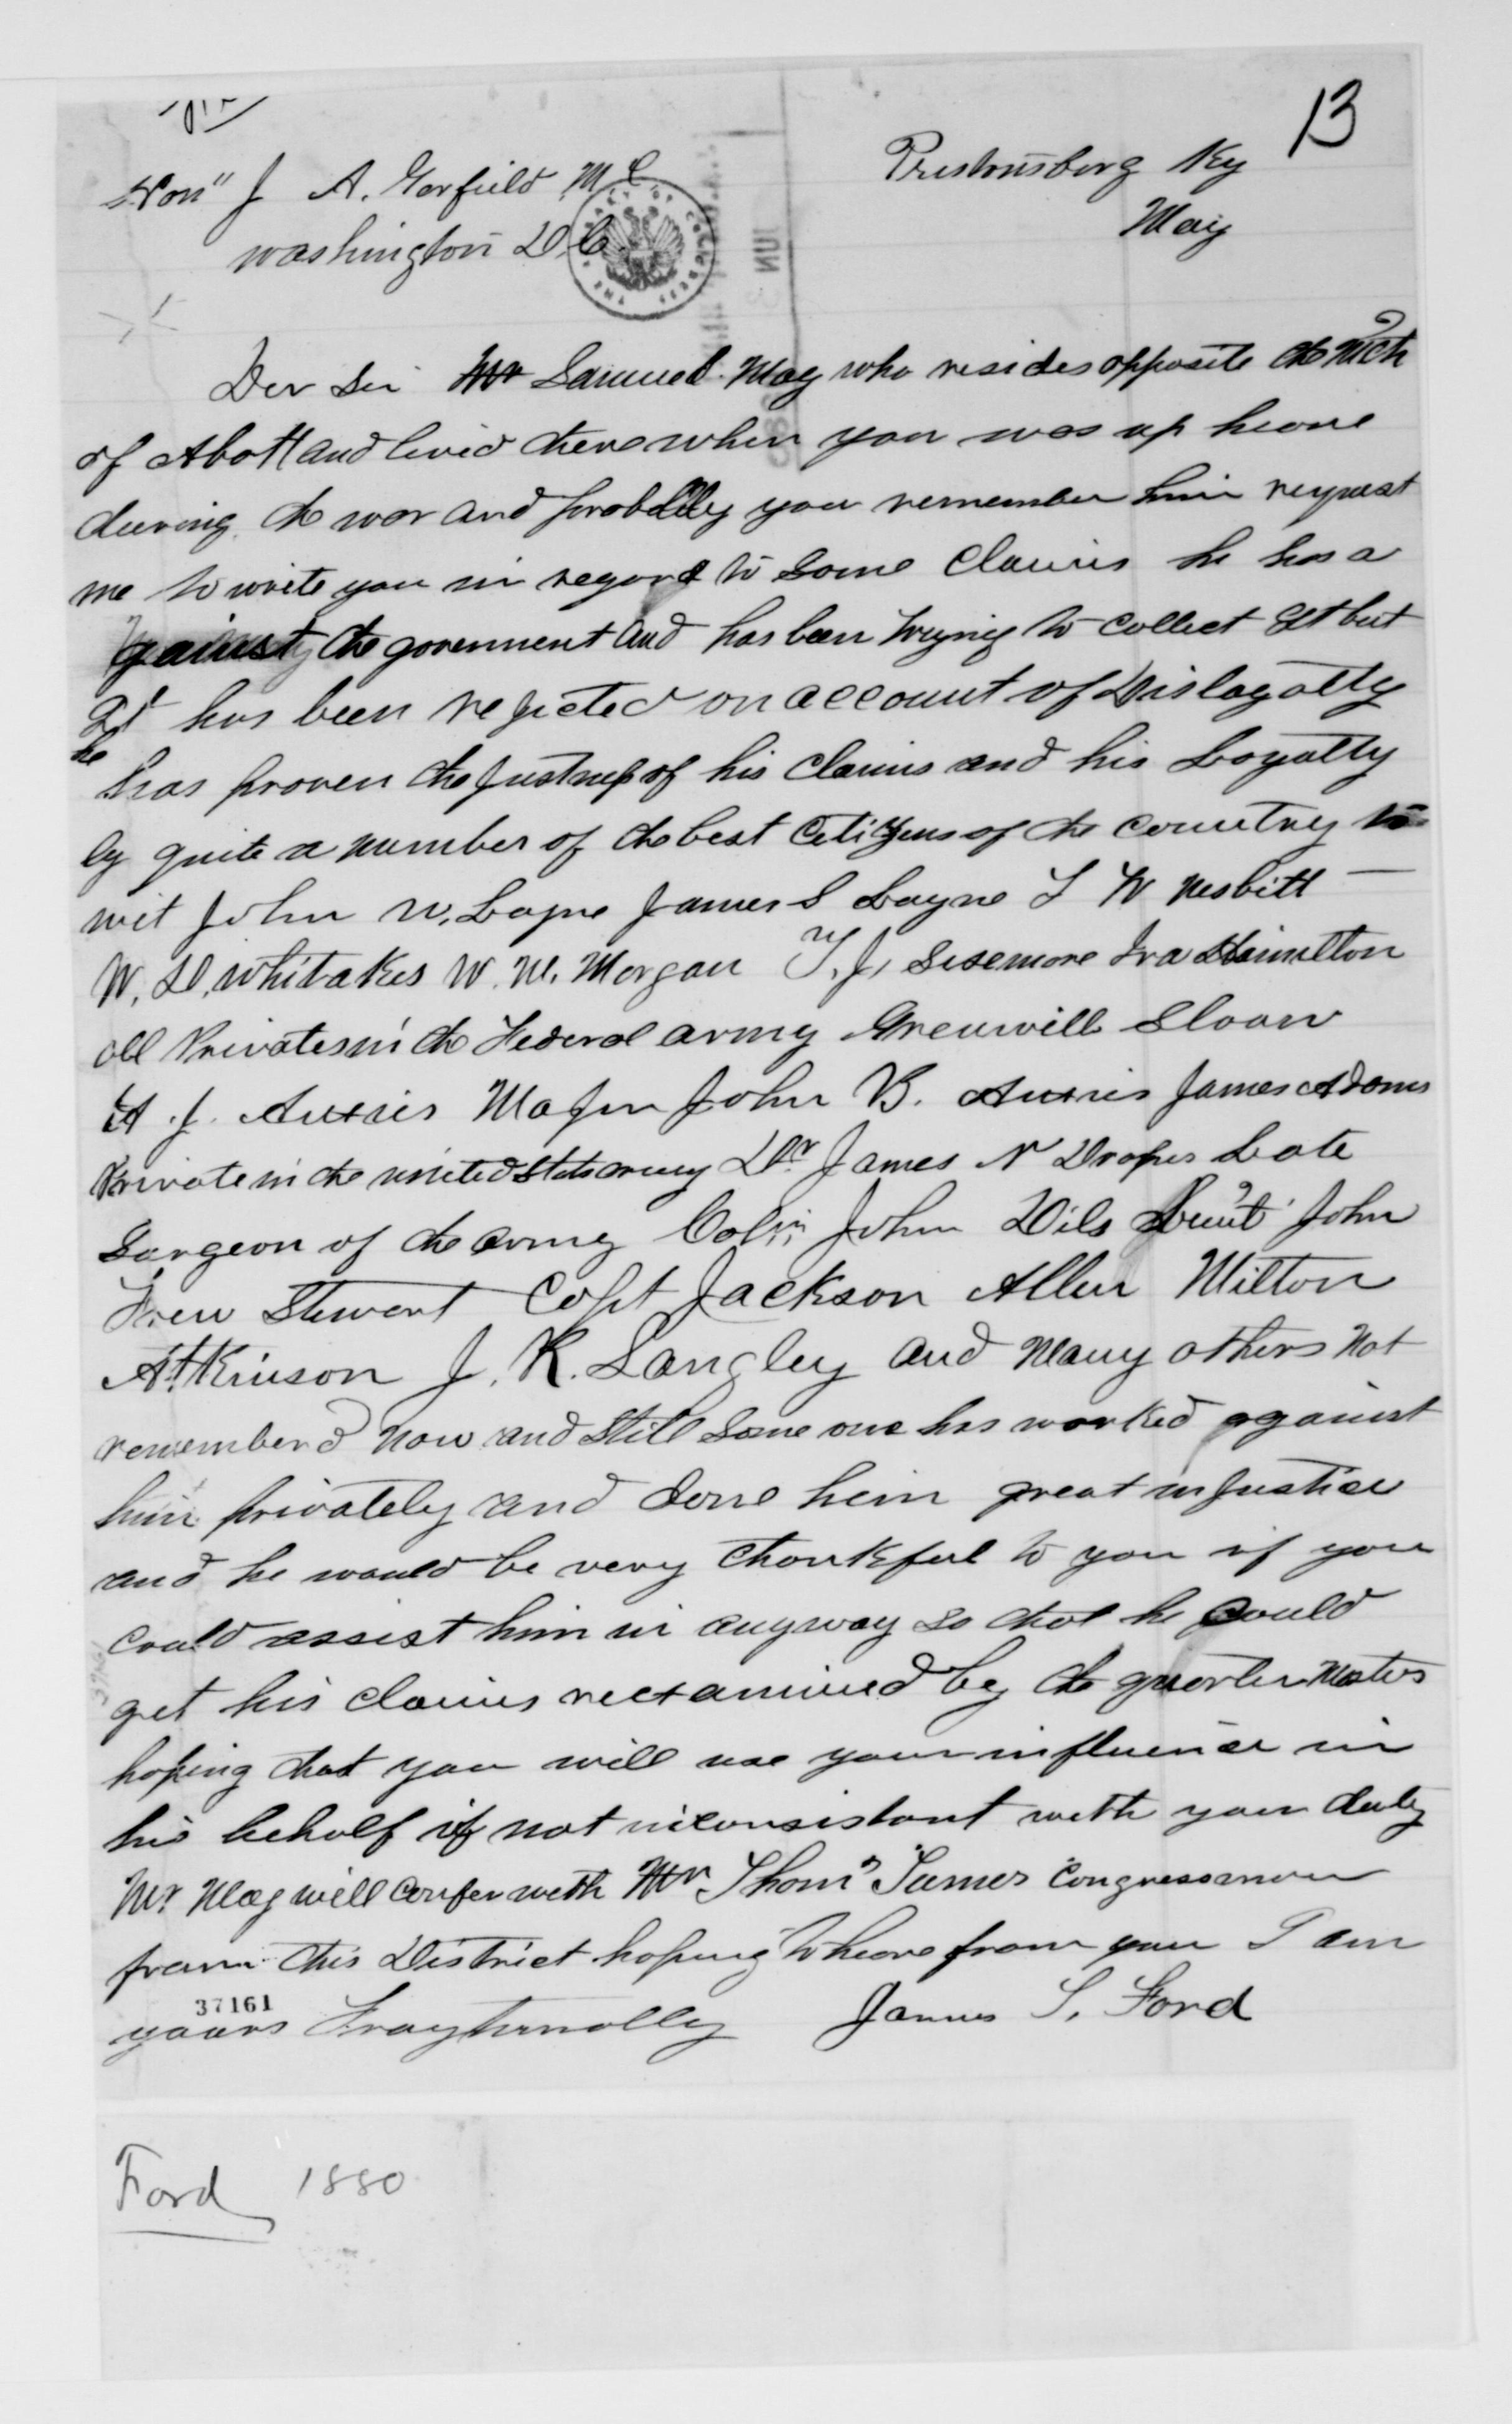 13
Prestonsborg Ky
May
Hon" J A. Garfield M C
Washington D.C.
Der Sir Mr Samuel May who resides opposite the Mth
of Abott and lived there when you was up heare
dureing the war and probablly you remember him request
me to write you in regard to some Claims he has a
gainst the goverment and has been trying to Collect It but
It has been rejected on account of Disloyalty
he has proven the Justness of his Claims and his Loyalty
by quite a number of the best Citizens of the Country to
wit John W. Layne James S Layne T W Nesbitt —
W. D. Whitaker W. M. Morgan T. J. Sisemore Ira Hamilton
all Privates in the Federal army Greenwill Sloan
A. J. Auxier Major John B. Auxier James Adams
Private in the united States army Dr. James N Draper Late
Surgeon of the army Coln John Dils Leut John
Frew Stewart Capt Jackson Allen Milton
Atkinson J. K. Langley and Many others Not
rememberd Now and Still Some one has worked against
him privately and done him great injustice
and he would be very thankful to you if you
could assist him in anyway so that he could
get his claims rexamined by the quarter Master
hoping that you will use your influence in
his behalf if not inconsistant with your duty
Mr May will confer with Mr Thom's Turner Congressman
from this District hoping to heare from you I am
yours Fraynternally James S. Ford
37161
Ford 1880